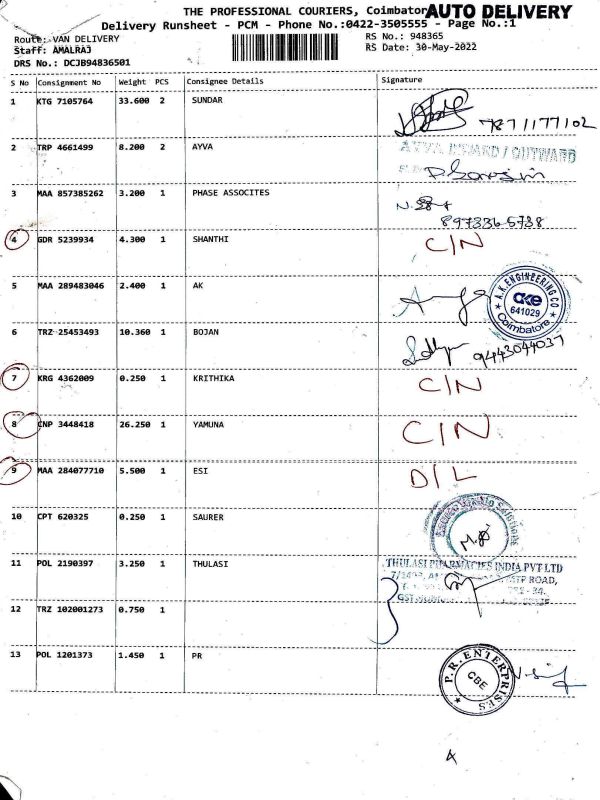 THE PROFESSIONAL COURIERS, Coimbator AUTO DELIVERY
Delivery Runsheet - PCM - Phone No.:0422-3505555 - Page No.:1
Route: VAN DELIVERY RS No.: 948365
Staff: AMALRAJ RS Date: 30-May-2022
DRS No.: DCJB94836501
S No Consignment No Weight PCS Consignee Details Signature
1 KTG 7105764 33.600 2 SUNDAR
7871177102
2 TRP 4661499 8.200 2 AYVA AYVA INWARD / OUTWARD
3 MAA 857385262 3.200 1 PHASE ASSOCITES
8973365738
4 GDR 5239934 4.300 1 SHANTHI C/N
5 MAA 289483046 2.400 1 AK A.K.ENGINEERING CO
ake
641029
Coimbatore
6 TRZ 25453493 10.360 1 BOJAN
9443044037
7 KRG 4362009 0.250 1 KRITHIKA C/N
8 CNP 3448418 26.250 1 YAMUNA C/N
9 MAA 284077710 5.500 1 ESI D/L
10 CPT 620325 0.250 1 SAURER
11 POL 2190397 3.250 1 THULASI THULASI PHARMACIES INDIA PVT LTD
ROAD,
12 TRZ 102001273 0.750 1
13 POL 1201373 1.450 1 PR P.R.ENTERPRISES
CBE